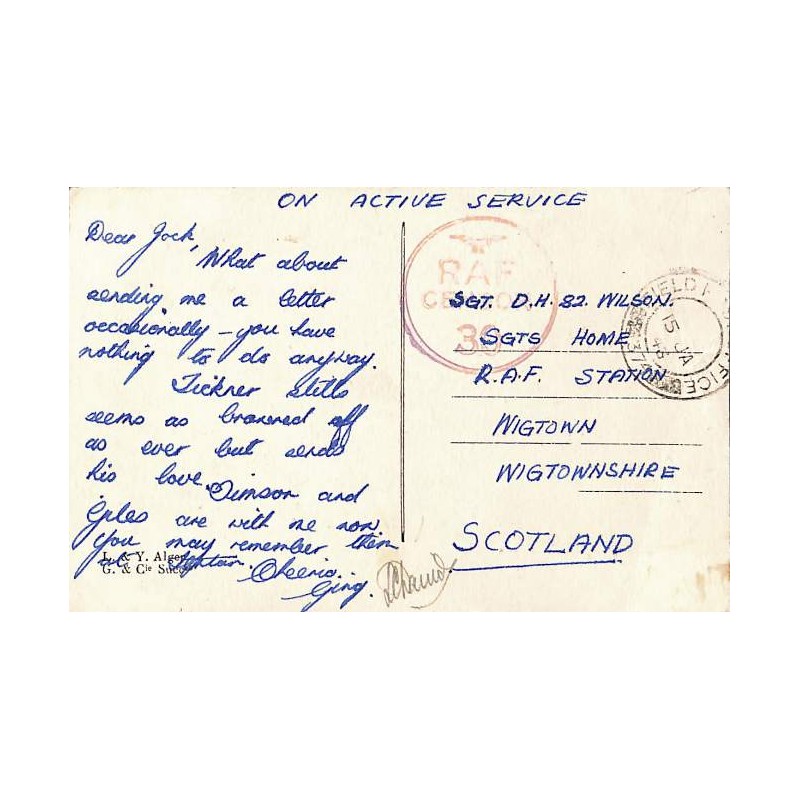 ON ACTIVE SERVICE
Dear Jock,
What about
sending me a letter
occasionally – you have
nothing to do anyway.
Tickner stills
seems as browned off
as ever but sends
his love. Simson and
Giles are with me now
you may remember them
at Cheerio.
Ging.
L. & Y. Alger
G. & Cie Succ
RAF
CENSOR
39
SGT. D.H. 82. WILSON.
SGTS HOME
R.A.F. STATION
WIGTOWN
WIGTOWNSHIRE
SCOTLAND
FIELD P OFFICE
15 JA
43